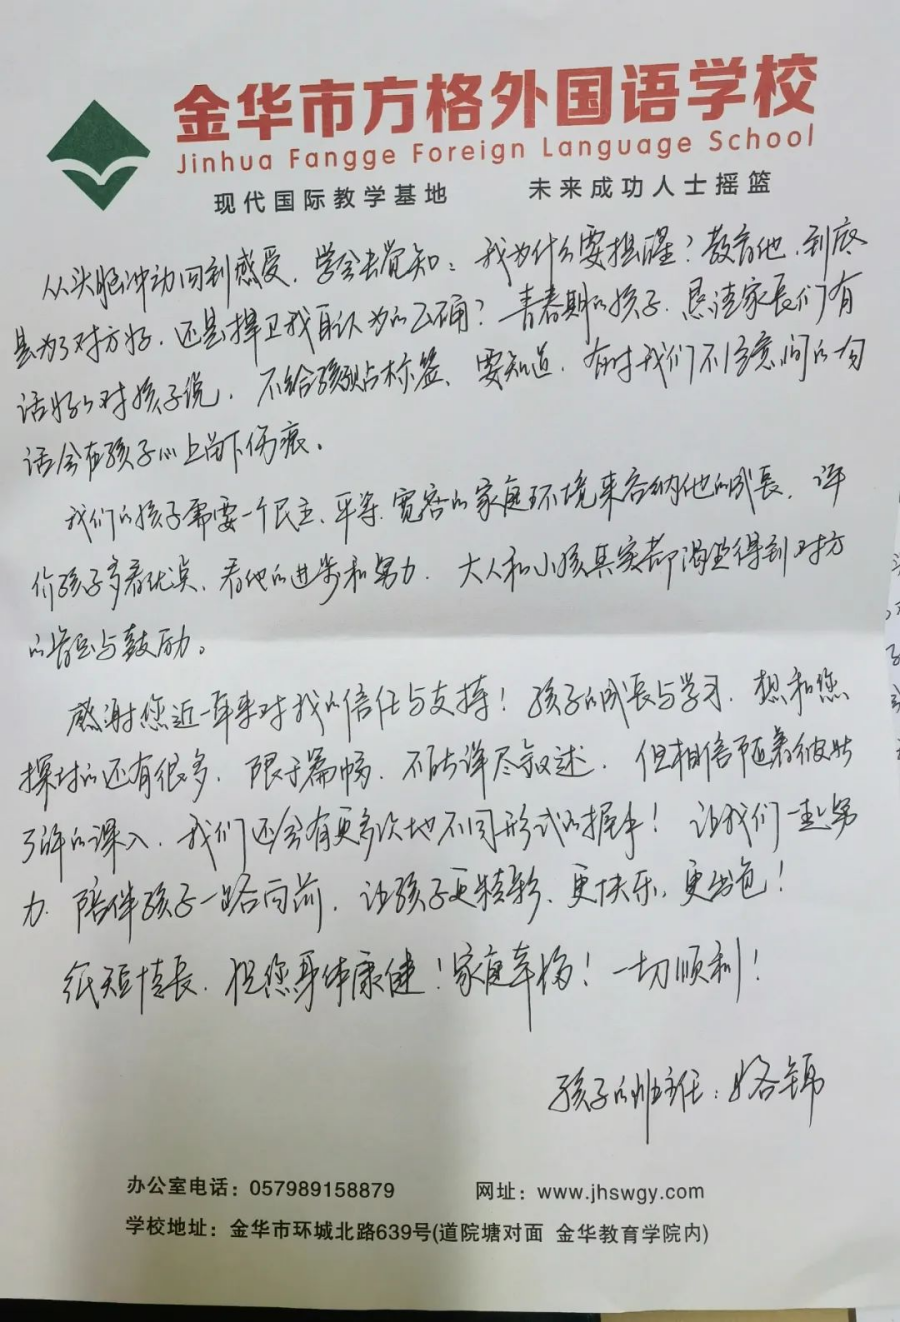 金华市方格外国语学校
Jinhua Fangge Foreign Language School
现代国际教学基地 未来成功人士摇篮
从头脑冲动回到感受,学会去觉知:我为什么要提醒?教育他,到底
是为了对方好,还是捍卫我自认为的正确?青春期的孩子,恳请家长们有
话好好对孩子说,不给孩子贴标签,要知道,有时我们不经意间的句
话会在孩子心上留下伤痕。
我们的孩子需要一个民主、平等、宽容的家庭环境来容纳他的成长,评
价孩子多看优点、看他的进步和努力,大人和小孩其实都渴望得到对方
的肯定与鼓励。
感谢您近一年来对我的信任与支持!孩子的成长与学习,想和您
探讨的还有很多,限于篇幅,不能详尽叙述,但相信随着彼此
了解的深入,我们还会有更多次地不同形式的握手!让我们一起努
力,陪伴孩子一路向前,让孩子更精彩、更快乐,更出色!
纸短情长,祝您身体康健!家庭幸福!一切顺利!
孩子的班主任:
办公室电话:057989158879 网址:www.jhswgy.com
学校地址:金华市环城北路639号(道院塘对面 金华教育学院内)